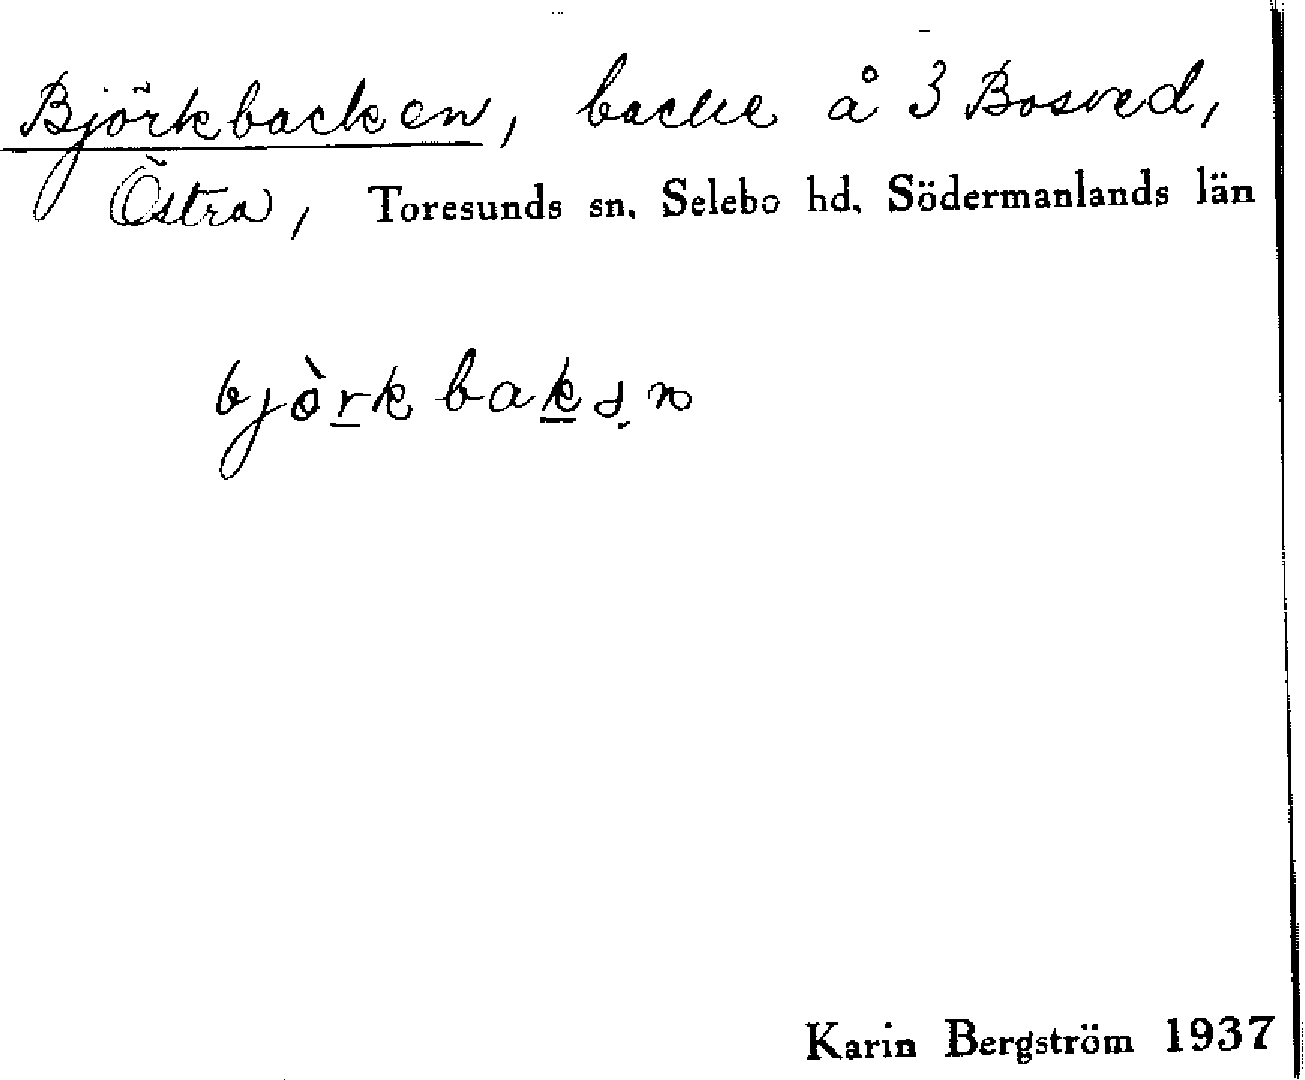 Björkbacken, backe å 3 Bosved,
Östra, Toresunds sn. Selebo hd. Södermanlands län
bjòrkbakən
Karin Bergström 1937